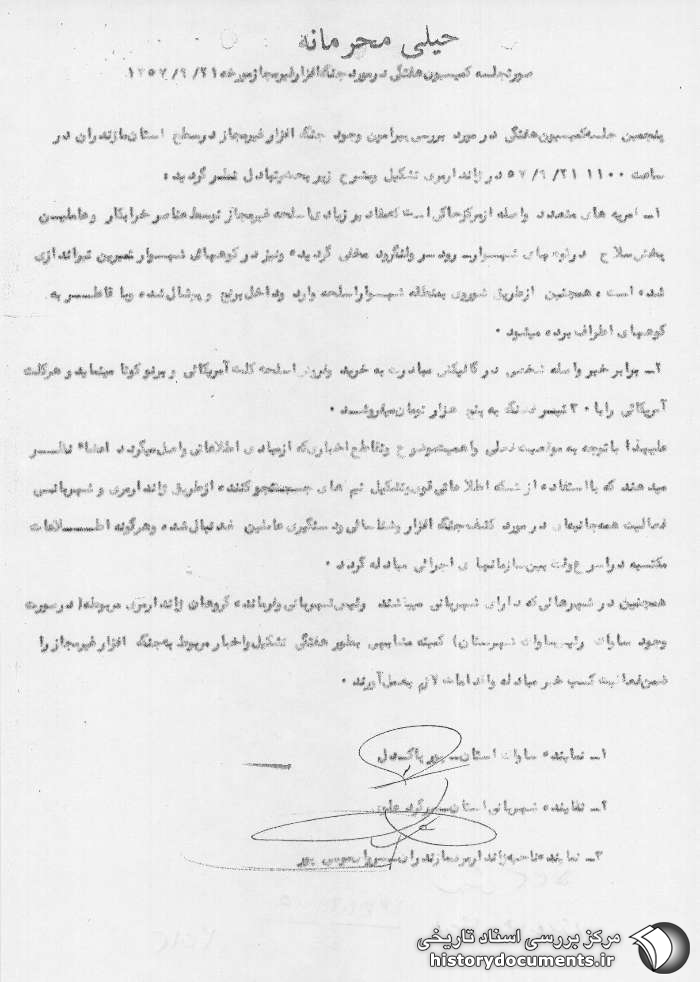 خیلی محرمانه
صورتجلسه کمیسیون هفتگی در مورد جنگ افزار غیرمجاز مورخه ۱۳۵۷/۹/۲۱
پنجمین جلسه کمیسیون هفتگی در مورد بررسی پیرامون وجود جنگ افزار غیرمجاز در سطح استان مازندران در
ساعت ۱۱۰۰ ۵۷/۹/۲۱ در ژاندارمری تشکیل و بشرح زیر بحث و تبادل نظر گردید ۰
۱ـ امریه های متعدد واصله از مرکز حاکی است که تعداد زیادی اسلحه غیرمجاز توسط عناصر خرابکار و عاملین
پخش سلاح در نواحی های شهسوار ـ رودسر و لنگرود مخفی گردیده و نیز در کوههای شهسوار تمرین تیراندازی
شده است ، همچنین از طریق شوروی به منطقه شهسوار اسلحه وارد و داخل برنج و پرتقال شده و با قاطر به
کوههای اطراف برده میشود ۰
۲ـ برابر خبر واصله شخصی در گالیکش مبادرت به خرید و فروش اسلحه کلت آمریکائی و برنو کوتا مینماید و هر کلت
آمریکائی را با ۳۰ تیر فشنگ به پنج هزار تومان میفروشد ۰
علیهذا با توجه به موقعیت فعلی و اهمیت موضوع و تقاطع اخباری که از مبادی اطلاعاتی واصل میگردد اعضاء نظر
میدهند که با استفاده از شبکه اطلاعاتی قوی و تشکیل تیم های جستجو کننده از طریق ژاندارمری و شهربانی
فعالیت همه جانبه‌ای در مورد کشف جنگ افزار و شناسائی و دستگیری عاملین دنبال شده و هرگونه اطلاعات
مکتسبه در اسرع وقت بین سازمانهای اجرائی مبادله گردد ۰
همچنین در شهرهائی که دارای شهربانی میباشند رئیس شهربانی و فرمانده گروهان ژاندارمری مربوطه ( در صورت
وجود ساواک رئیس ساواک شهرستان) کمیته مشابهی بطور هفتگی تشکیل و اخبار مربوط به جنگ افزار غیرمجاز را
ضمن فعالیت کسب خبر مبادله و اقدامات لازم بعمل آورند ۰
۱ـ نماینده ساواک استان ـ پاکدل
۲ـ نماینده شهربانی استان ـ سرگرد علوی
۳ـ نماینده ناحیه ژاندارمری مازندران ـ سروان موسی پور
مرکز بررسی اسناد تاریخی
historydocuments.ir